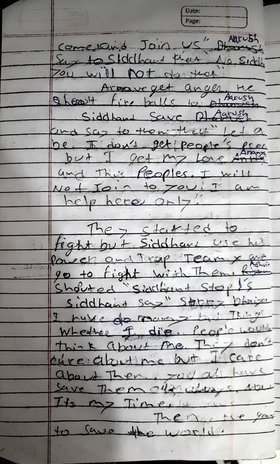 Date:
Page:
Aarush
come and Join us"
Say to Siddhant that No, Siddh
You will not do this
get anger He
Shoot fire balls to Aarush
Siddhant Save Aarush
and say to them that" Let a
be. I don't get People's
but I get my Love
and This Peoples. I will
Not Join to You! I am
help here only!"
They started to
fight but Siddhant use his
Power and Trap Team
go to fight with Them.
Shouted "Siddhant Stop!"
Siddhant Say"
I have do many Thing
Whether I die. People
Think about Me They don't
care about me but I care
about Them. You all have
Save Them always
Its my Time
Then, He goes
to save the world.